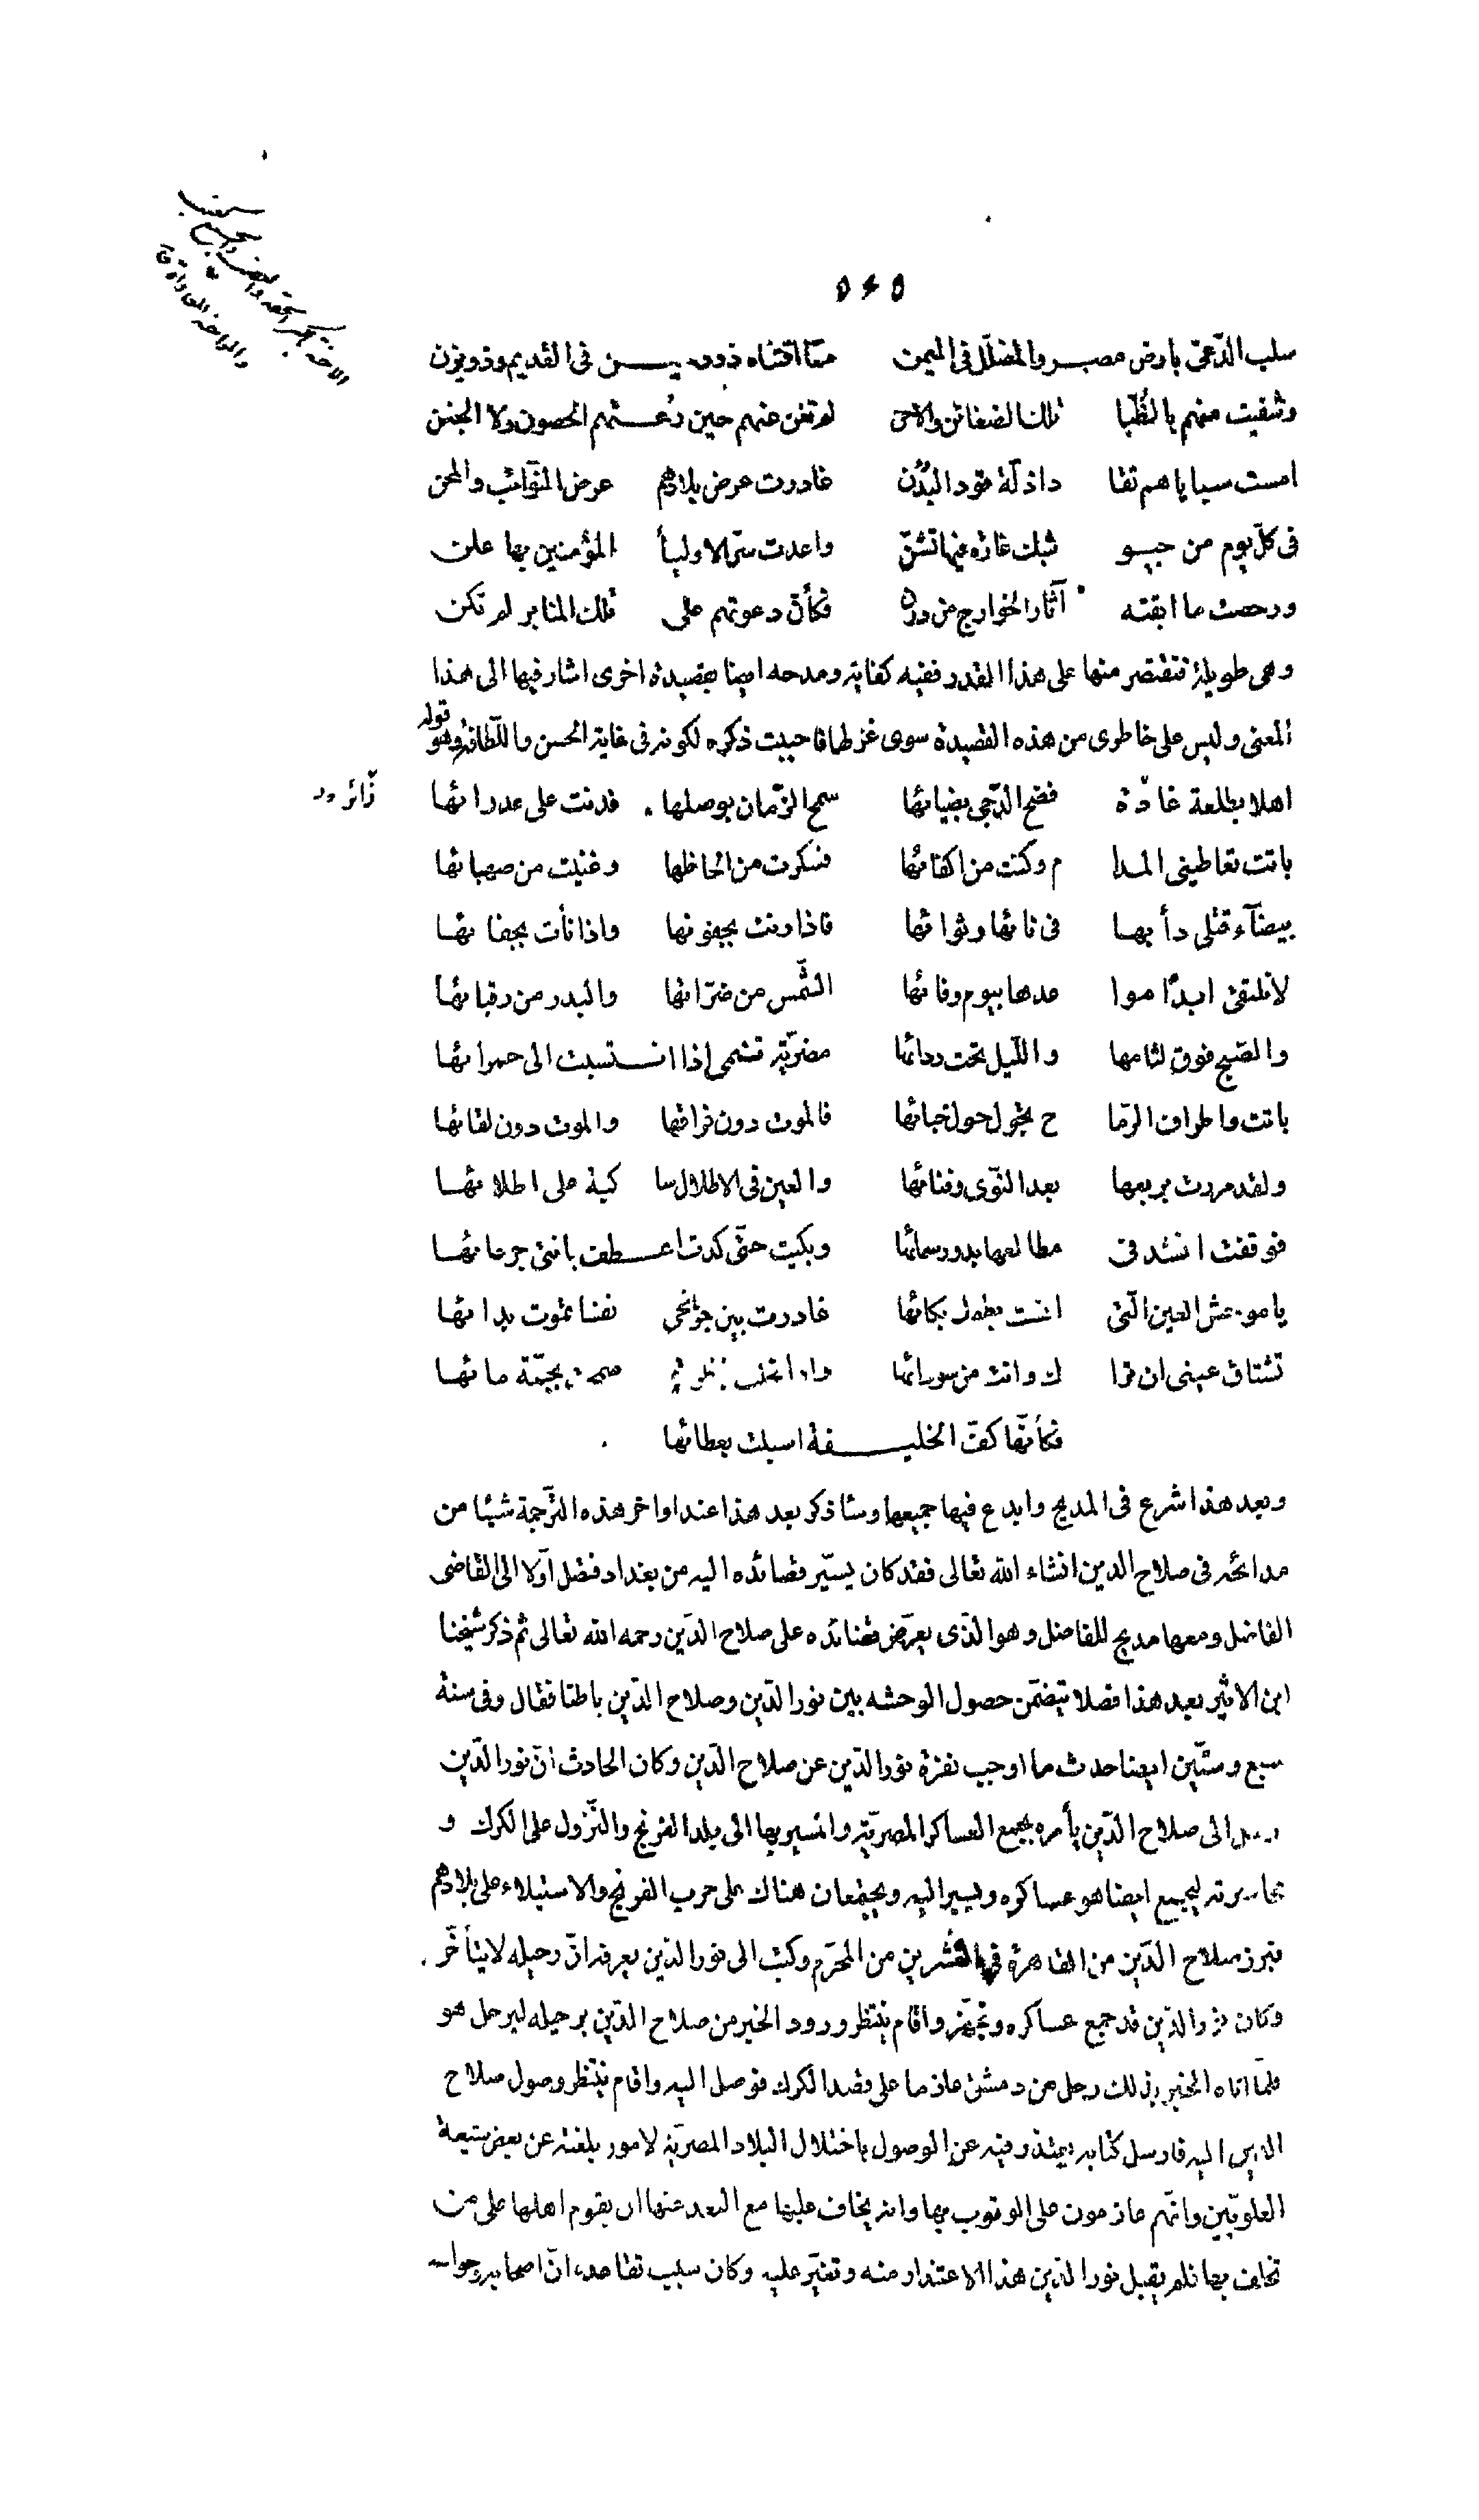 ٥٤٥
سلب الدّعىّ بارض مصر والمضلّل فى اليمن ممّا اقتناه ذوو يسن فى القديم وذو يزن
وشفيت منهم بالظُّبا تلك الضغائن والاحن لم تغن عنهم حين رُعتهم الحصون ولا الجنن
امست سباياهم تقا داذلّة قود البُدُن غادرت عرض بلادهم عرض النّوائب والمحن
فى كلّ يوم من جيو شك غارة فيها تشنّ واعدت سرّ الاوليأ المؤمنين بها علن
ورحضت ما ابقته آثار الخوارج من درن فكأنّ دعوتهم على تلك المنابر لم تكن
وهى طويلة فنقتصر منها على هذا القدر ففيه كفاية ومدحه ايضا بقصيدة اخرى اشار فيها الى هذا
المعنى وليس على خاطرى من هذه القصيدة سوى غزلها فاحببت ذكره لكونه فى غاية الحسن واللّطافة وهو قوله
اهلا بطلعة غادة فضح الدّجى بضيائها سمح الزّمان بوصلها فدنت على عدوائها
زائر
باتت تعاطينى المدا م وكنت من اكفائها فسكرت من الحاظها وغنيت من صهبائها
بيضآء قتلى دأبها فى نائها وثوائها فاذا رنت بجفونها واذا نأت بجفائها
لا نلتقى ابدًا موا عدها بيوم وفائها الشّمس من ضرّاتها والبدر من رقبائها
والصّبح فوق لثامها واللّيل تحت ردائها مضريّة تنمى اذا انتسبت الى حمرائها
باتت واطراف الرّما ح تجول حول خبائها فالموت دون فراقها والموت دون لقائها
ولقد مررت بربعها بعد النّوى وفنائها والعين فى الاطلال سا كبة على اطلائها
فوقفت انشد فى مطالعها بدور سمائها وبكيت حتّى كدت اعطف بانتى جرعائها
يا موحش العين الّتى انست بطول بكائها غادرت بين جوانحى نفسا تموت بدائها
تشتاق عينى ان ترا ك وانت من سودائها بجمّة مائها
فكأنّها كفّ الخليفة اسبلت بعطائها
وبعد هذا شرع فى المديح وابدع فيها جميعها وسأذكر بعد هذا عند اواخر هذه التّرجمة شيئا من
مدائحه فى صلاح الدين انشاء الله تعالى فقد كان يسيّر قصائده اليه من بغداد فتصل اوّلا الى القاضى
الفاضل ومعها مديح للفاضل وهو الّذى يعرّض قصائده على صلاح الدّين رحمه الله تعالى ثم ذكر شيخنا
ابن الاثير بعد هذا فصلا يتضمّن حصول الوحشه بين نور الدّين وصلاح الدّين باطنا فقال وفى سنة
سبع وستّين ايضا حدث ما اوجب نفرة نور الدّين عن صلاح الدّين وكان الحادث انّ نور الدّين
الى صلاح الدّين يأمره بجمع العساكر المصريّة والمسير بها الى بلد الفرنج والنّزول على الكرك و
ليجمع ايضا هو عساكره ويسير اليه ويجتمعان هناك على حرب الفرنج والاستيلاء على بلادهم
فبرز صلاح الدّين من القاهرة فى العشرين من المحرّم وكتب الى نور الدّين يعرفه انّ رحيله لا يتأخّر
وكان نور الدّين قد جمع عساكره وتجهّز واقام ينتظر ورود الخبر من صلاح الدّين برحيله ليرحل هو
فلمّا اتاه الخبر بذلك رحل من دمشق عازما على قصد الكرك فوصل اليه واقام ينتظر وصول صلاح
الدين اليه فارسل كتابه يعتذر فيه عن الوصول باختلال البلاد المصريّة لامور بلغته عن بعض شيعة
العلويّين وانّهم عازمون على الوثوب بها وانه يخاف عليها مع البعد عنها ان يقوم اهلها على من
تخلف بها فلم يقبل نور الدّين هذا الاعتذار منه وتغيّر عليه وكان سبب تقاعده انّ اصحابه